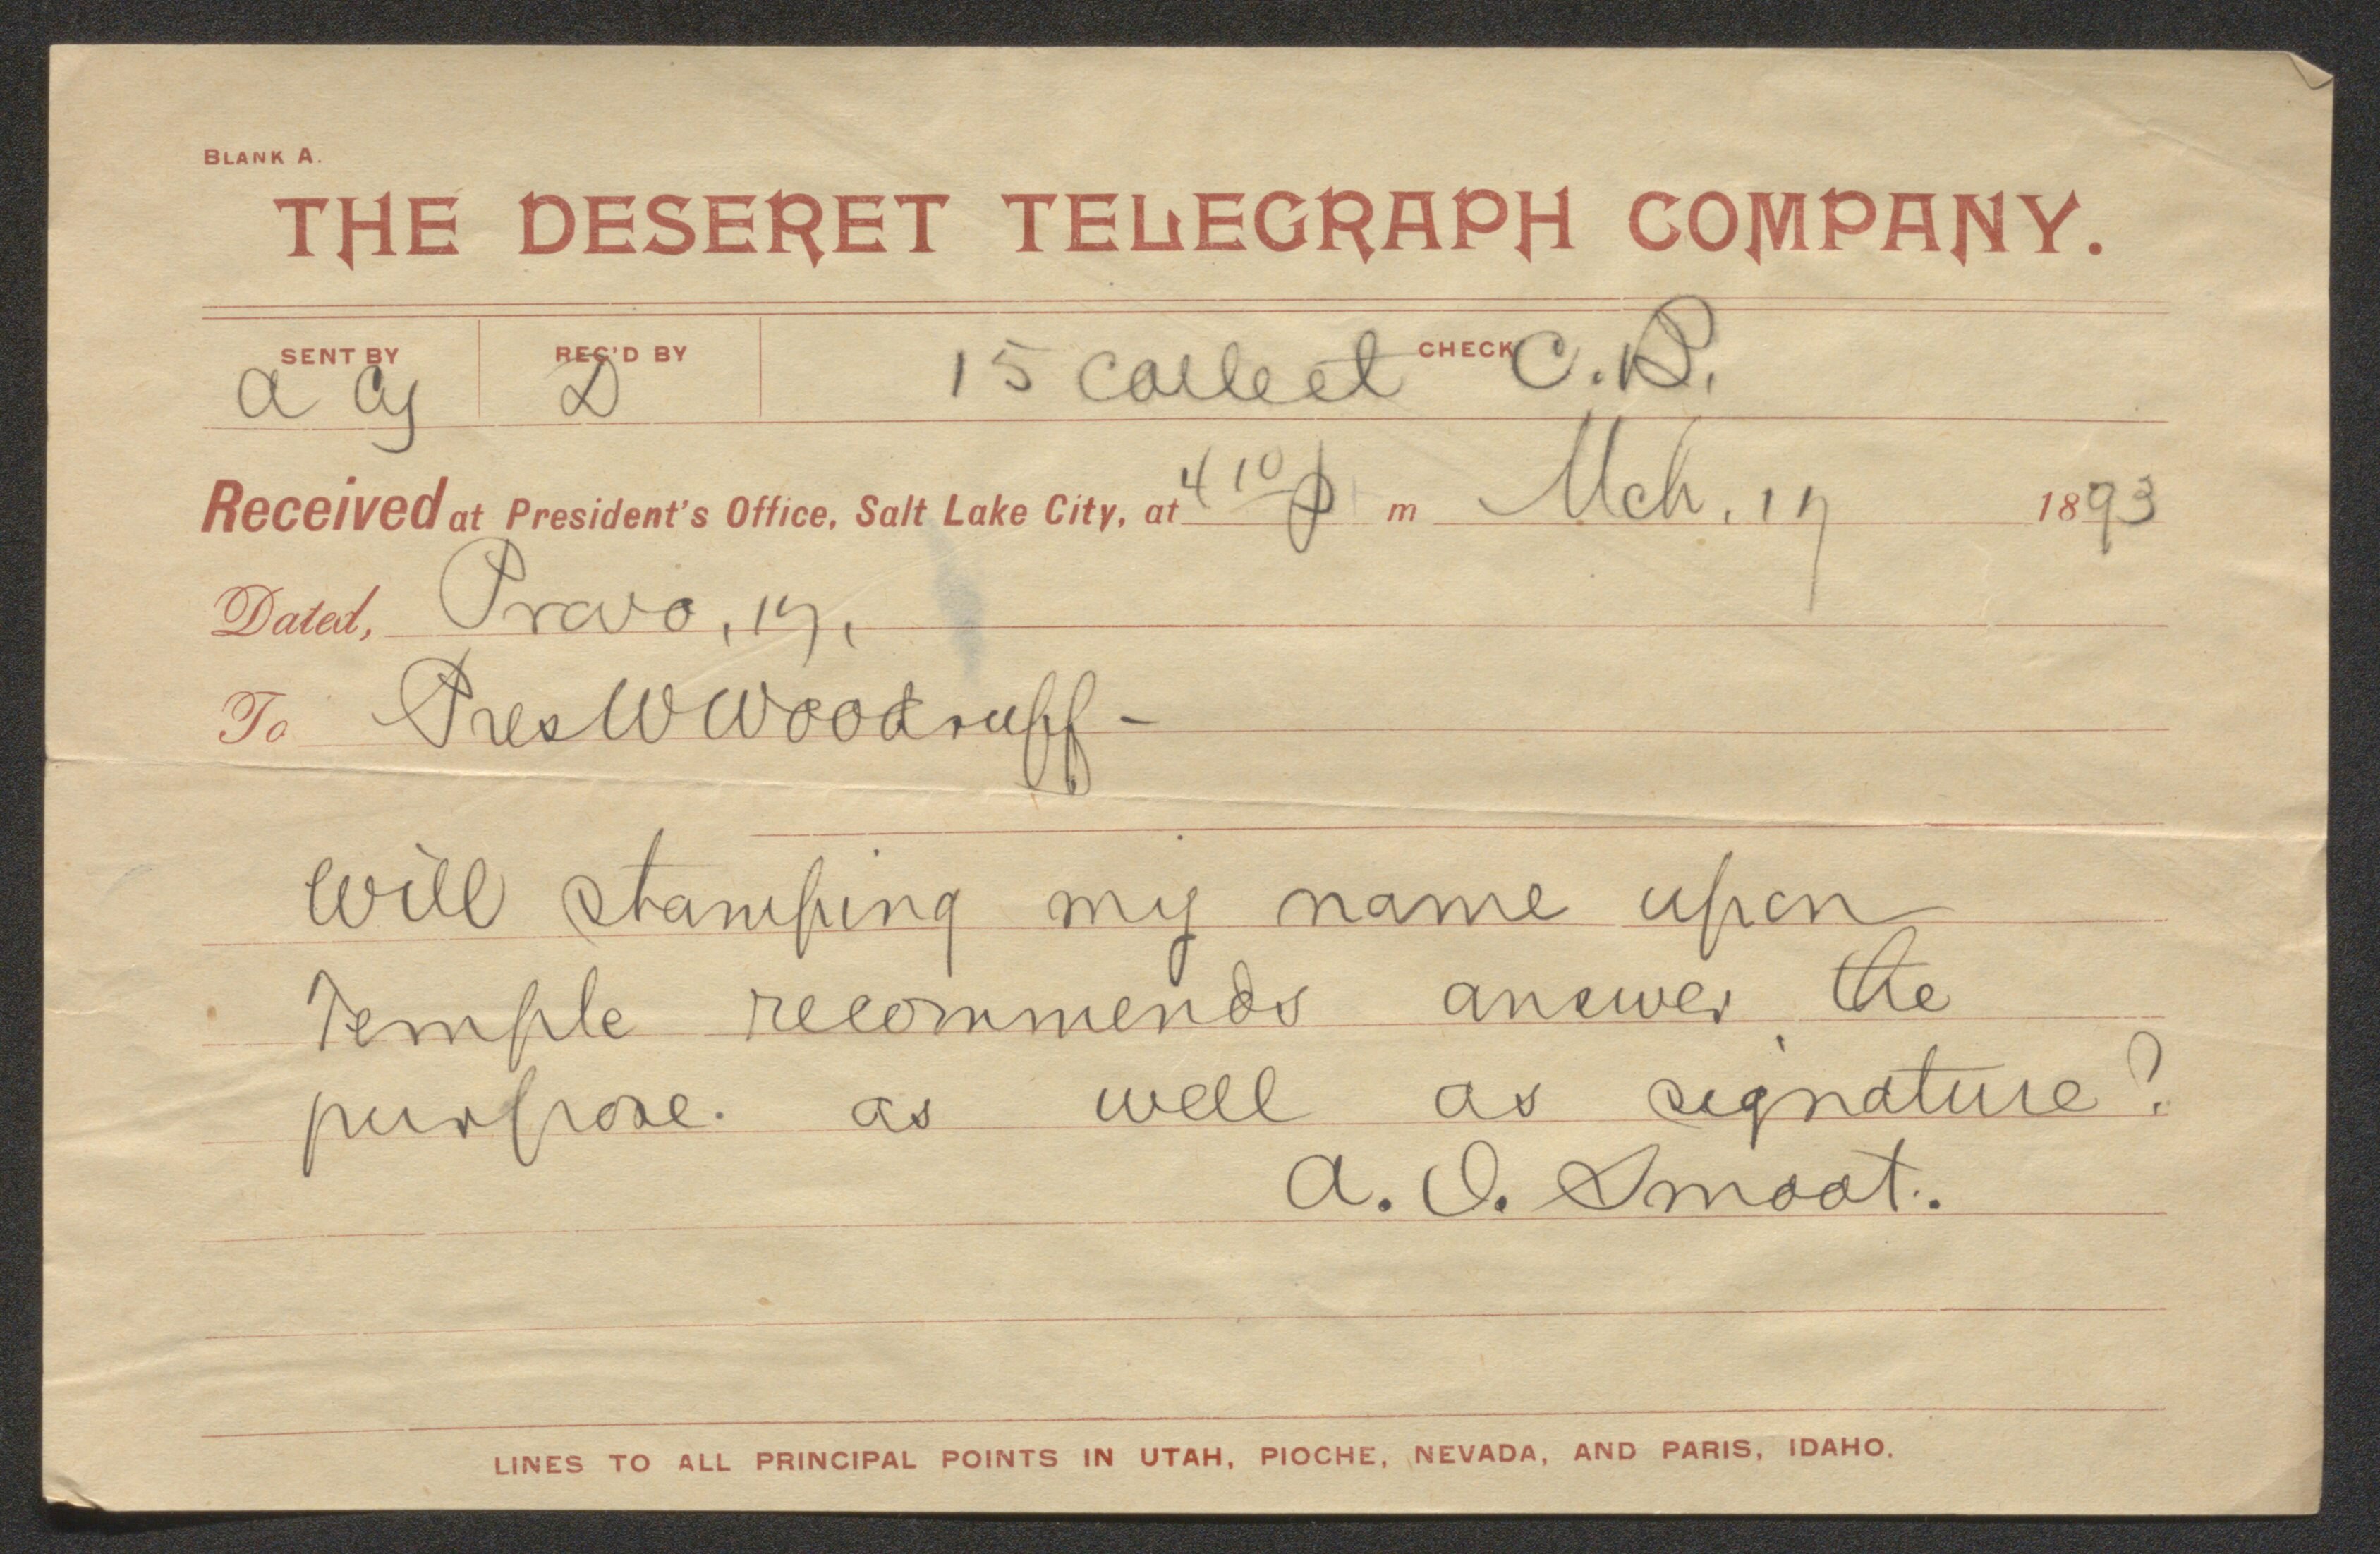 BLANK A.
THE DESERET TELEGRAPH COMPANY.
SENT BY REC'D BY CHECK
a Cy D 15 Collect C.B.
Received at President's Office, Salt Lake City, at 4 10 p m Mch. 17 1893
Dated, Provo, 17,
To Pres W Woodruff -
Will stamping my name upon
Temple recommends answer the
purpose. as well as signature?
A. O. Smoot.
LINES TO ALL PRINCIPAL POINTS IN UTAH, PIOCHE, NEVADA, AND PARIS, IDAHO.